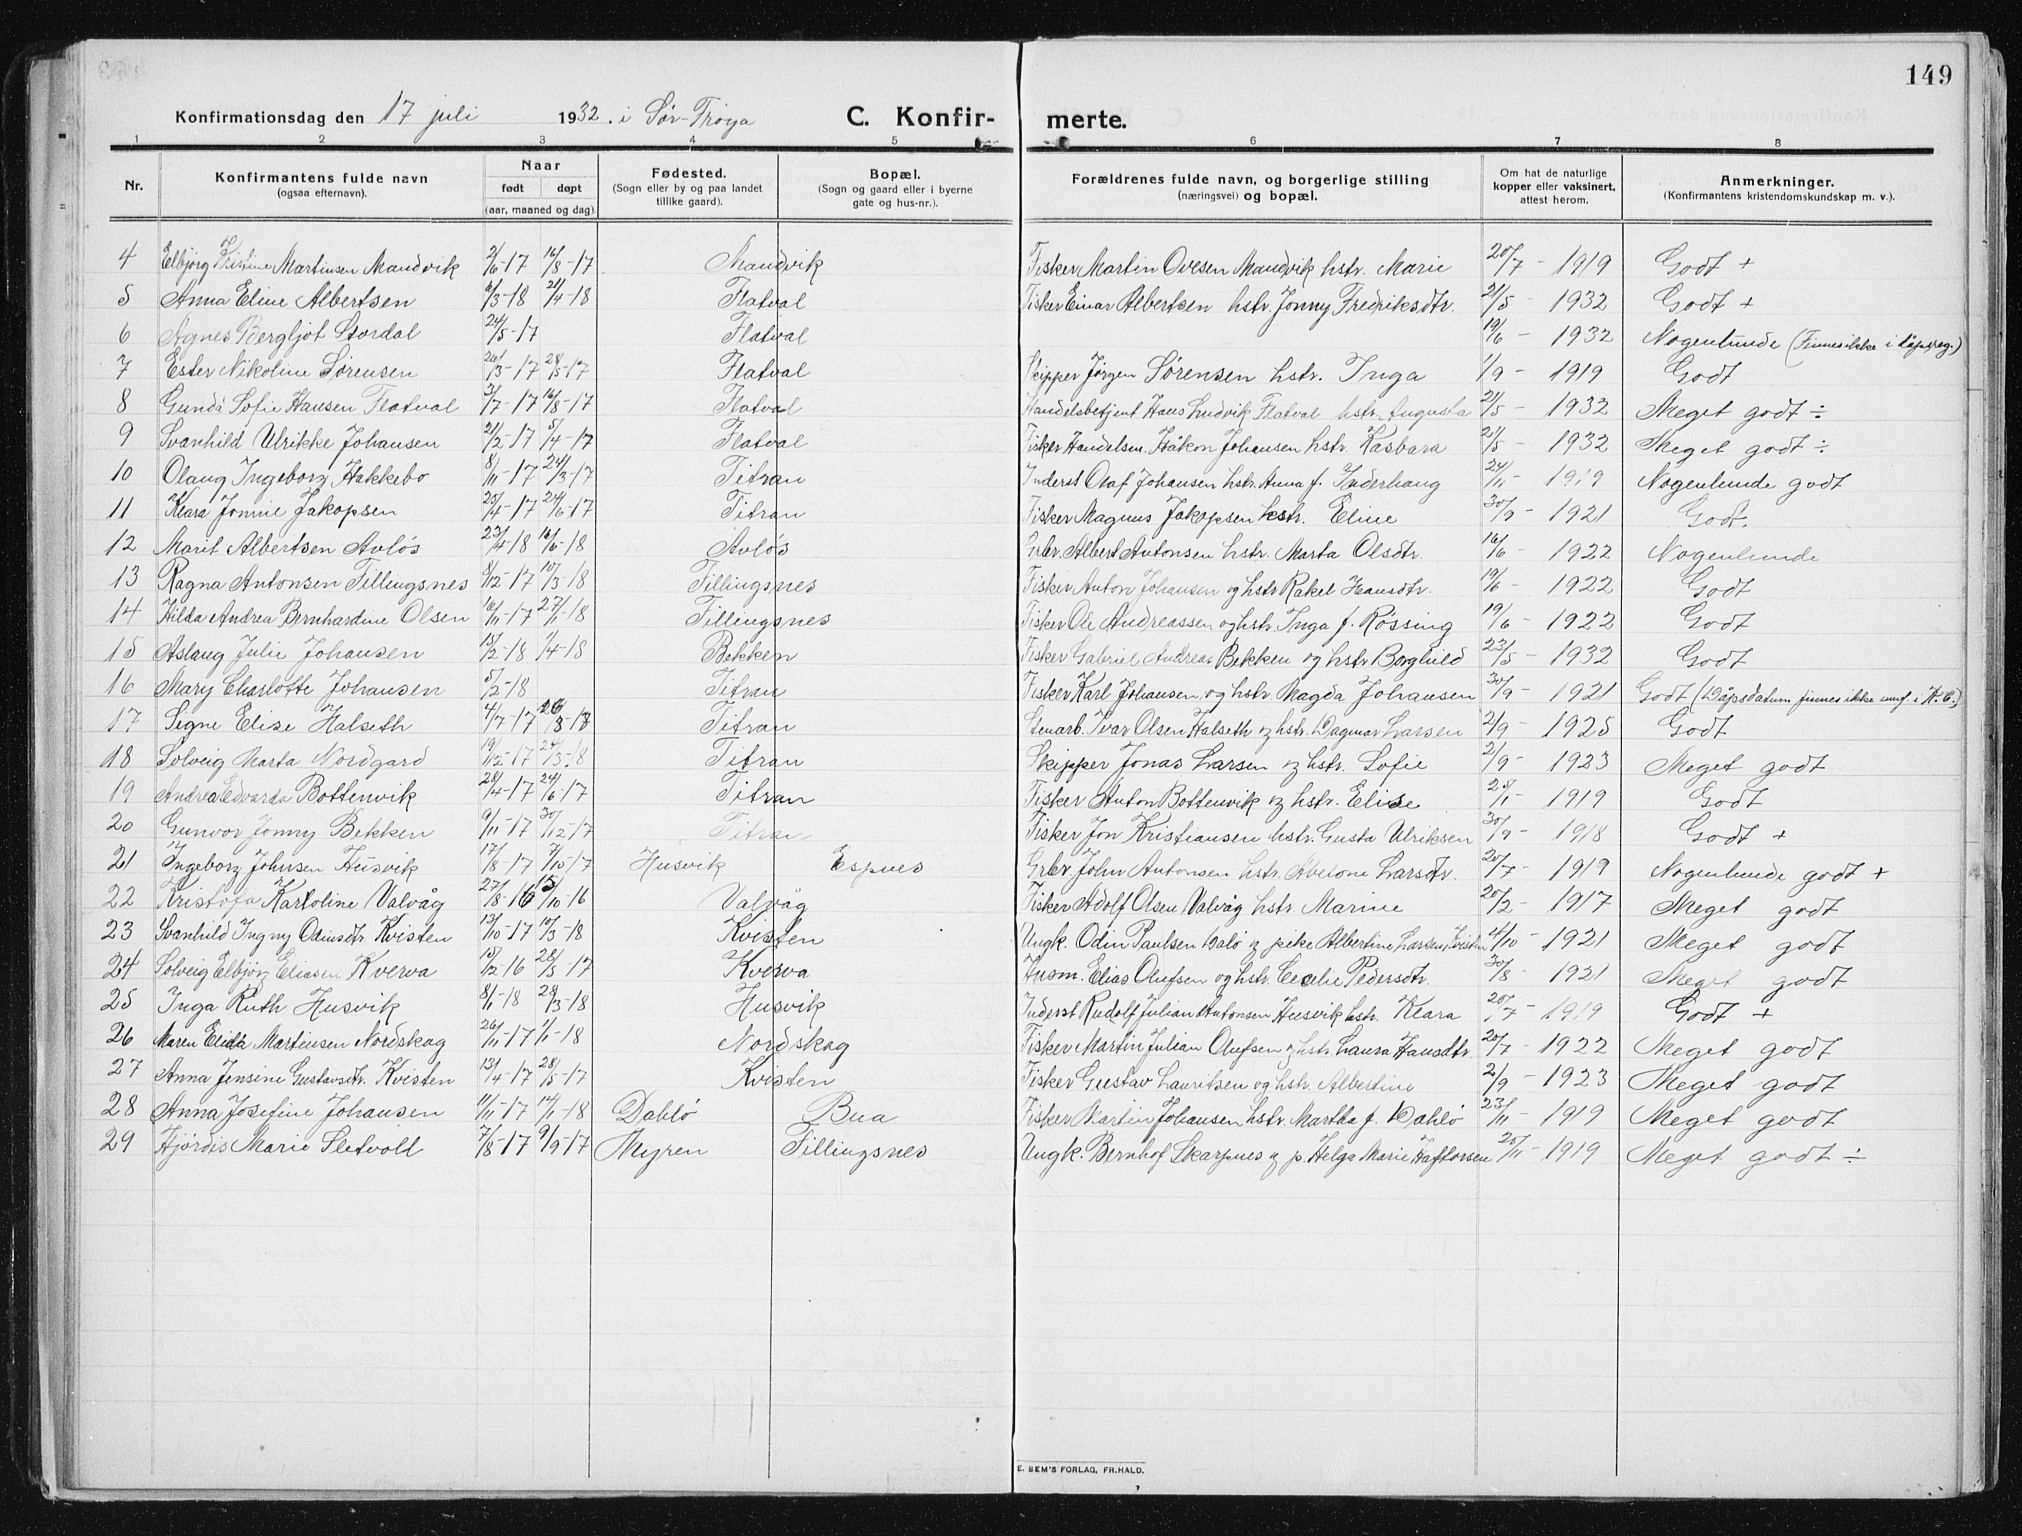 149
Konfirmationsdag den 17 juli 1932. i Sør-Frøya C. Konfir- merte.
1 2 3 4 5 6 7 8
Nr. Konfirmantens fulde navn (ogsaa efternavn). Naar født døpt (aar, maaned og dag). Fødested. (Sogn eller by og paa landet tillike gaard). Bopæl. (Sogn og gaard eller i byerne gate og hus-nr.). Forældrenes fulde navn, og borgerlige stilling (næringsvei) og bopæl. Om hat de naturlige kopper eller vaksinert, attest herom. Anmerkninger. (Konfirmantens kristendomskundskap m. v.).
4 Elbjørg Kristine Martinsen Mandvik 2/6-17 16/8-17 Mandvik Fisker Martin Ovesen Mandvik hstr. Marie 20/7 - 1919 Godt +
5 Anna Eline Albertsen 6/3-18 21/4-18 Flatval Fisker Einar Albertsen hstr. Jonny Fredriksdtr. 21/5 - 1932 Godt +
6 Agnes Bergljot Stordal 24/5-17 Flatval 19/6 - 1932 Nogenlunde (Finnes ikke i dåpsreg.)
7 Ester Nikoline Sørensen 26/3-17 28/5-17 Flatval Skipper Jørgen Sørensen hstr. Inga 1/9 - 1919 Godt
8 Gunda Sofie Hansen Flatval 3/7-17 16/8-17 Flatval Handelsbetjent Hans Ludvik Flatval hstr. Augusta 21/5 - 1932 Meget godt ÷
9 Svanhild Ulrikke Johansen 21/2-17 5/4-17 Flatval Fisker Handelsm. Håkon Johansen hstr. Kasbara 21/5 - 1932 Meget godt ÷
10 Olaug Ingeborg Hakkebo 8/11-17 24/3-17 Titran Inderst Olaf Johansen hstr. Anna f. Inderhaug 24/11 - 1919 Nogenlunde godt
11 Klara Jonnie Jakopsen 25/4-17 24/6-17 Titran Fisker Magnus Jakopsen hstr. Eline 30/9 - 1921 Godt.
12 Marit Albertsen Avløs 23/4-18 16/6-18 Avløs Grbr. Albert Antonsen hstr. Marta Olsdtr. 16/6 - 1922 Nogenlunde
13 Ragna Antonsen Tillingsnes 8/12-17 10/3-18 Tillingsnes Fisker Anton Johansen og hstr Rakel Hansdtr. 19/6 - 1922 Godt
14 Hilda Andrea Bernhardine Olsen 16/11-17 27/1-18 Tillingsnes Fisker Ole Andreassen og hstr. Inga f. Røssing 19/6 - 1922 Godt
15 Aslaug Julie Johansen 15/2-18 1/4-18 Bekken Fisker Gabriel Andreas Bekken og hstr Borghild 23/5 - 1932 Godt
16 Mary Charlotte Johansen 5/2-18 Titran Fisker Karl Johansen og hstr Magda Johansen 30/9 - 1921 Godt (Dåpsdatum finnes ikke innf. i K.B.)
17 Signe Elise Halseth 4/7-17 26/8-17 Titran Stenarb. Ivar Olsen Halseth og hstr. Dagmar Larsen 2/9 - 1925 Godt
18 Solveig Marta Nordgard 19/12-17 24/3-18 Titran Skipper Jonas Larsen og hstr. Sofie 2/9 - 1923 Meget godt
19 Andrea Edvarda Bottenvik 28/4-17 24/6-17 Titran Fisker Anton Bottenvik og hstr. Elise 25/1 - 1919 Godt
20 Gunvor Jonny Bekken 9/11-17 30/12-17 Titran Fisker Jon Kristiansen hstr. Gusta Ulriksen 30/9 - 1918 Godt +
21 Ingeborg Johnsen Husvik 17/8-17 7/10-17 Husvik Espnes Grbr. John Antonsen hstr. Abelone Larsdtr. 20/7 - 1919 Nogenlunde godt +
22 Kristofa Karoline Valvåg 27/8-16 15/10-16 Valvåg Fisker Adolf Olsen Valvåg hstr. Marine 20/2 - 1917 Meget godt
23 Svanhild Ingny Odinsdtr Kvisten 13/10-17 10/3-18 Kvisten Ungk. Odin Paulsen Dalø og pike Albertine Larsen Kvisten 4/10 - 1921 Meget godt
24 Solveig Elbjørg Eliasen Kverva 15/12-16 28/5-17 Kverva Husm. Elias Olufsen og hstr. Cecelie Pedersdtr. 30/8 - 1921 Meget godt
25 Inga Ruth Husvik 8/1-18 28/3-18 Husvik Inderst Rudolf Julian Antonsen Husvik hstr. Klara 20/7 - 1919 Godt +
26 Maren Elida Martinsen Nordskag 26/11-17 1/1-18 Nordskag Fisker Martin Julian Olufsen og hstr. Laura Hansdtr. 20/7 - 1922 Meget godt
27 Anna Jensine Gustavsdtr. Kvisten 13/4-17 28/5-17 Kvisten Fisker Gustav Lauritsen og hstr. Albertine 2/9 - 1923 Meget godt
28 Anna Josefine Johansen 11/11-17 14/1-18 Dahlø Bua Fisker Martin Johansen hstr. Martha f. Dahlø 23/11 - 1919 Meget godt
29 Hjørdis Marie Sletvoll 7/8-17 9/9-17 Myren Tillingsnes Ungk. Bernhof Skarpnes og p. Helga Marie Haftorsen 20/11 - 1919 Meget godt ÷
E. SEM'S FORLAG, FR.HALD.